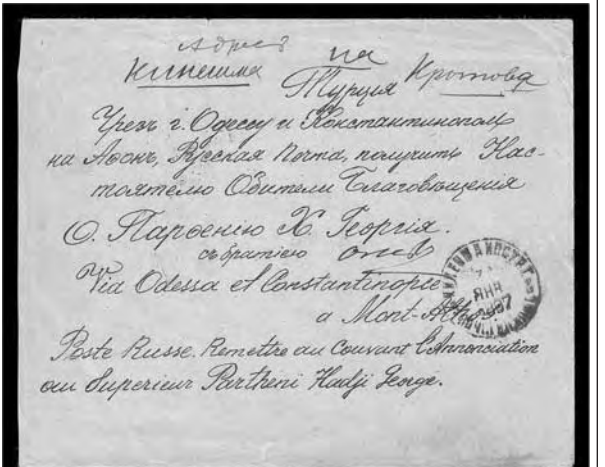 Адрес на
Кинешма Турция Кротова
Чрезъ г. Одессу и Константинополь
на Аѳонъ, Русская Почта, получить Нас-
тоятелю Обители Благовѣщенія
О. Парѳенію Х. Георгія.
съ братією
Via Odessa et Constantinople
a Mont-Athos
Poste Russe. Remettre au Couvant l'Annonciation
au Superieur Partheni Hadji George.
КИНЕШМА КОСТР. Г.
ЯНВ
1897